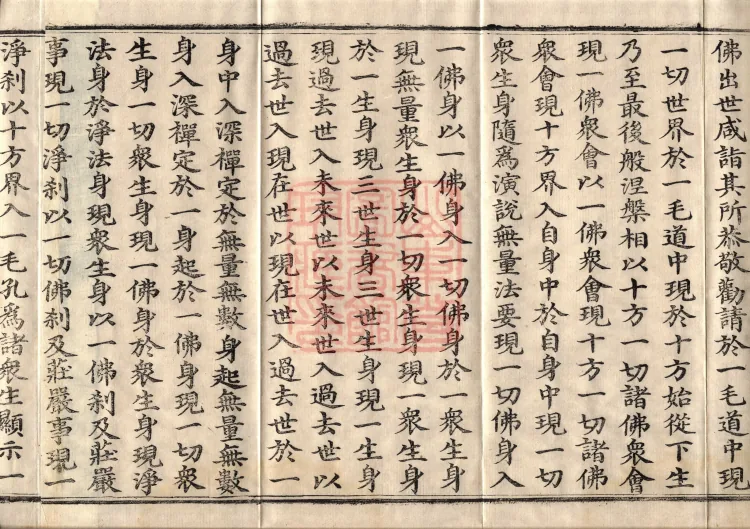 佛出世咸詣其所恭敬勸請於一毛道中現
一切世界於一毛道中現於十方始從下生
乃至最後般涅槃相以十方一切諸佛衆會
現一佛衆會以一佛衆會現十方一切諸佛
衆會現十方界入自身中於自身中現一切
衆生身隨爲演說無量法要現一切佛身入
一佛身以一佛身入一切佛身於一衆生身
現無量衆生身於一切衆生身現一衆生身
於一生身現三世生身三世生身現一生身
現過去世入未來世以未來世入過去世以
過去世入現在世以現在世入過去世於一
身中入深禪定於無量無數身起無量無數
身入深禪定於一身起於一佛身現一切衆
生身一切衆生身現一佛身於衆生身現淨
法身於淨法身現衆生身以一佛刹及莊嚴
事現一切淨刹以一切佛刹及莊嚴事現一
淨刹以十方界入一毛孔爲諸衆生顯示一